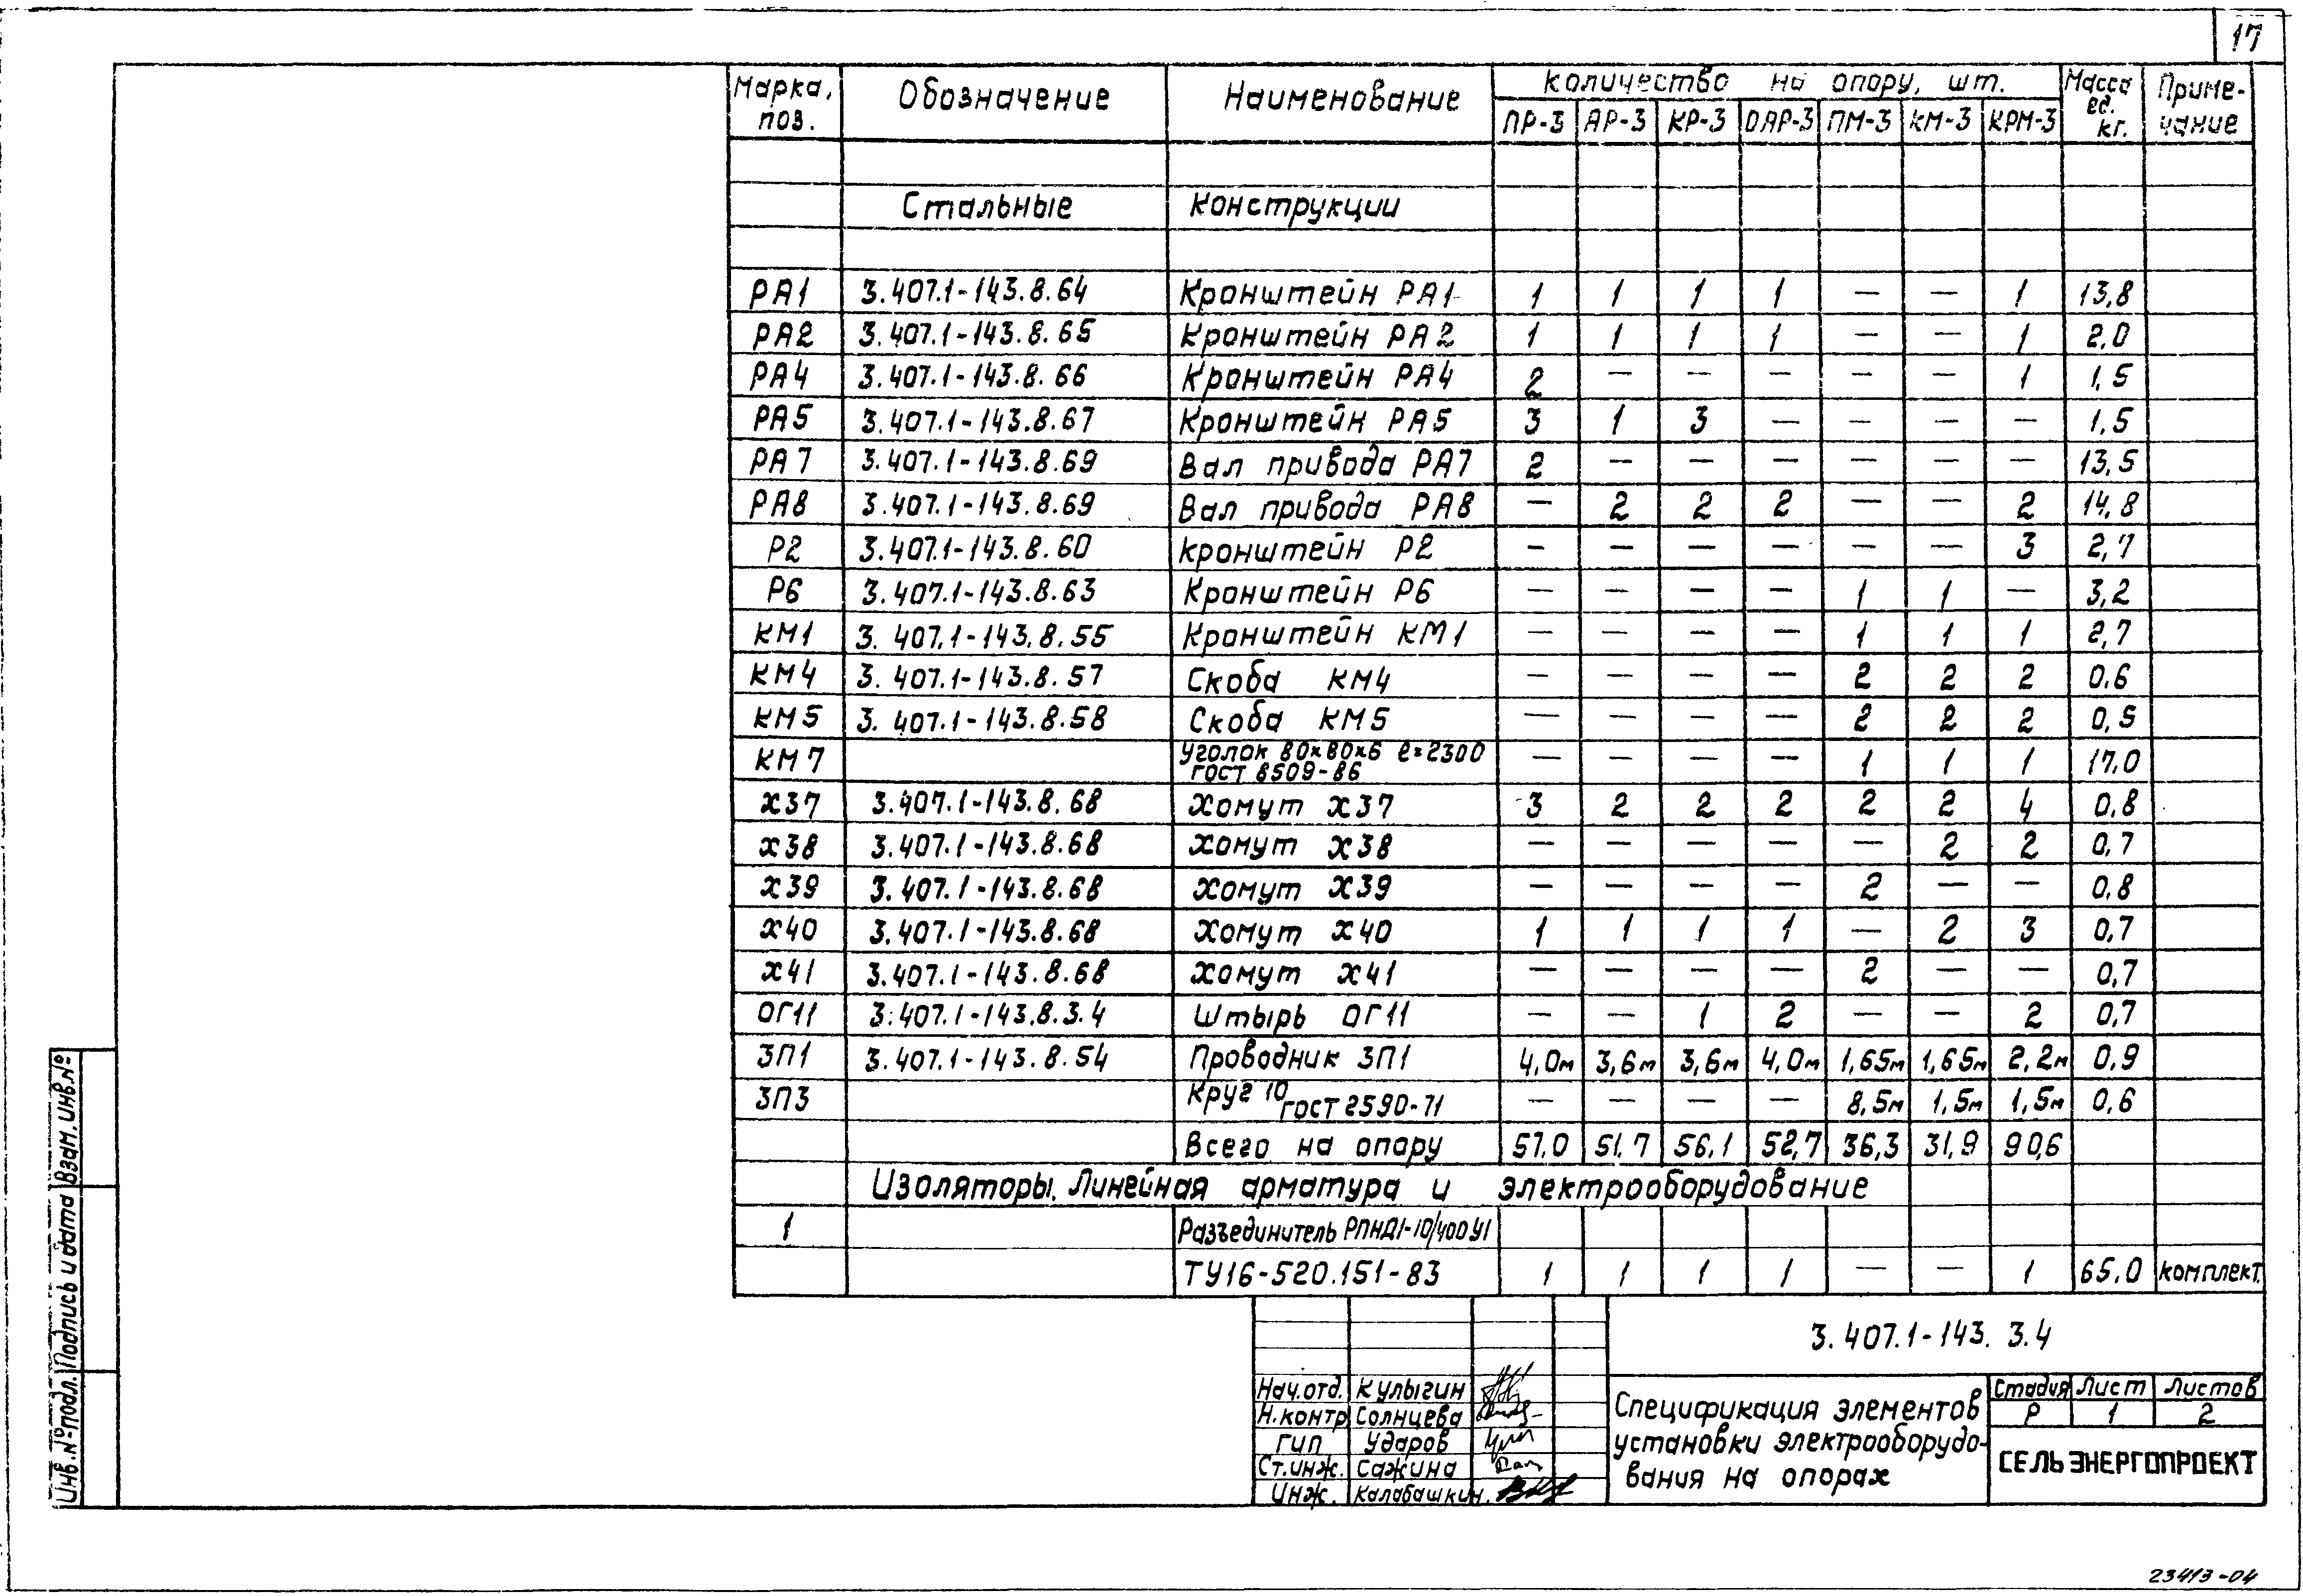 17
Марка, поз. Обозначение Наименование Количество на опору, шт. Масса ед. кг. Примечание
ПР-3 АР-3 КР-3 ОАР-3 ПМ-3 КМ-3 КРМ-3
Стальные конструкции
РА1 3.407.1-143.8.64 Кронштейн РА1 1 1 1 1 — — 1 13,8
РА2 3.407.1-143.8.65 Кронштейн РА2 1 1 1 1 — — 1 2,0
РА4 3.407.1-143.8.66 Кронштейн РА4 2 — — — — — 1 1,5
РА5 3.407.1-143.8.67 Кронштейн РА5 3 1 3 — — — — 1,5
РА7 3.407.1-143.8.69 Вал привода РА7 2 — — — — — — 13,5
РА8 3.407.1-143.8.69 Вал привода РА8 — 2 2 2 — — 2 14,8
Р2 3.407.1-143.8.60 кронштейн Р2 — — — — — — 3 2,7
Р6 3.407.1-143.8.63 Кронштейн Р6 — — — — 1 1 — 3,2
КМ1 3.407.1-143.8.55 Кронштейн КМ1 — — — — 1 1 1 2,7
КМ4 3.407.1-143.8.57 Скоба КМ4 — — — — 2 2 2 0.6
КМ5 3.407.1-143.8.58 Скоба КМ5 — — — — 2 2 2 0,5
КМ7 Уголок 80х80х6 ℓ=2300 ГОСТ 8509-86 — — — — 1 1 1 17,0
Х37 3.407.1-143.8.68 Хомут Х37 3 2 2 2 2 2 4 0,8
Х38 3.407.1-143.8.68 Хомут Х38 — — — — — 2 2 0,7
Х39 3.407.1-143.8.68 Хомут Х39 — — — — 2 — — 0,8
Х40 3.407.1-143.8.68 Хомут Х40 1 1 1 1 — 2 3 0,7
Х41 3.407.1-143.8.68 Хомут Х41 — — — — 2 — — 0,7
ОГ11 3.407.1-143.8.3.4 Штырь ОГ11 — — 1 2 — — 2 0,7
ЗП1 3.407.1-143.8.54 Проводник ЗП1 4,0м 3,6м 3,6м 4,0м 1,65м 1,65м 2,2м 0,9
ЗП3 Круг 10 ГОСТ 2590-71 — — — — 8,5м 1,5м 1,5м 0,6
Всего на опору 57.0 51,7 56,1 52,7 36,3 31,9 90,6
Изоляторы. Линейная арматура и электрооборудование
1 Разъединитель РЛНД1-10/400У1
ТУ16-520.151-83 1 1 1 1 — — 1 65,0 комплект.
3.407.1-143. 3.4
Нач.отд. Кулыгин
Н.контр Солнцева
ГИП Ударов
Ст.инж. Сажина
Инж. Калабашкин.
Спецификация элементов
установки электрооборудо-
вания на опорах
Стадия Лист Листов
Р 1 2
СЕЛЬЭНЕРГОПРОЕКТ
Инв.№подл. Подпись и дата Взам.инв.№
23413-04